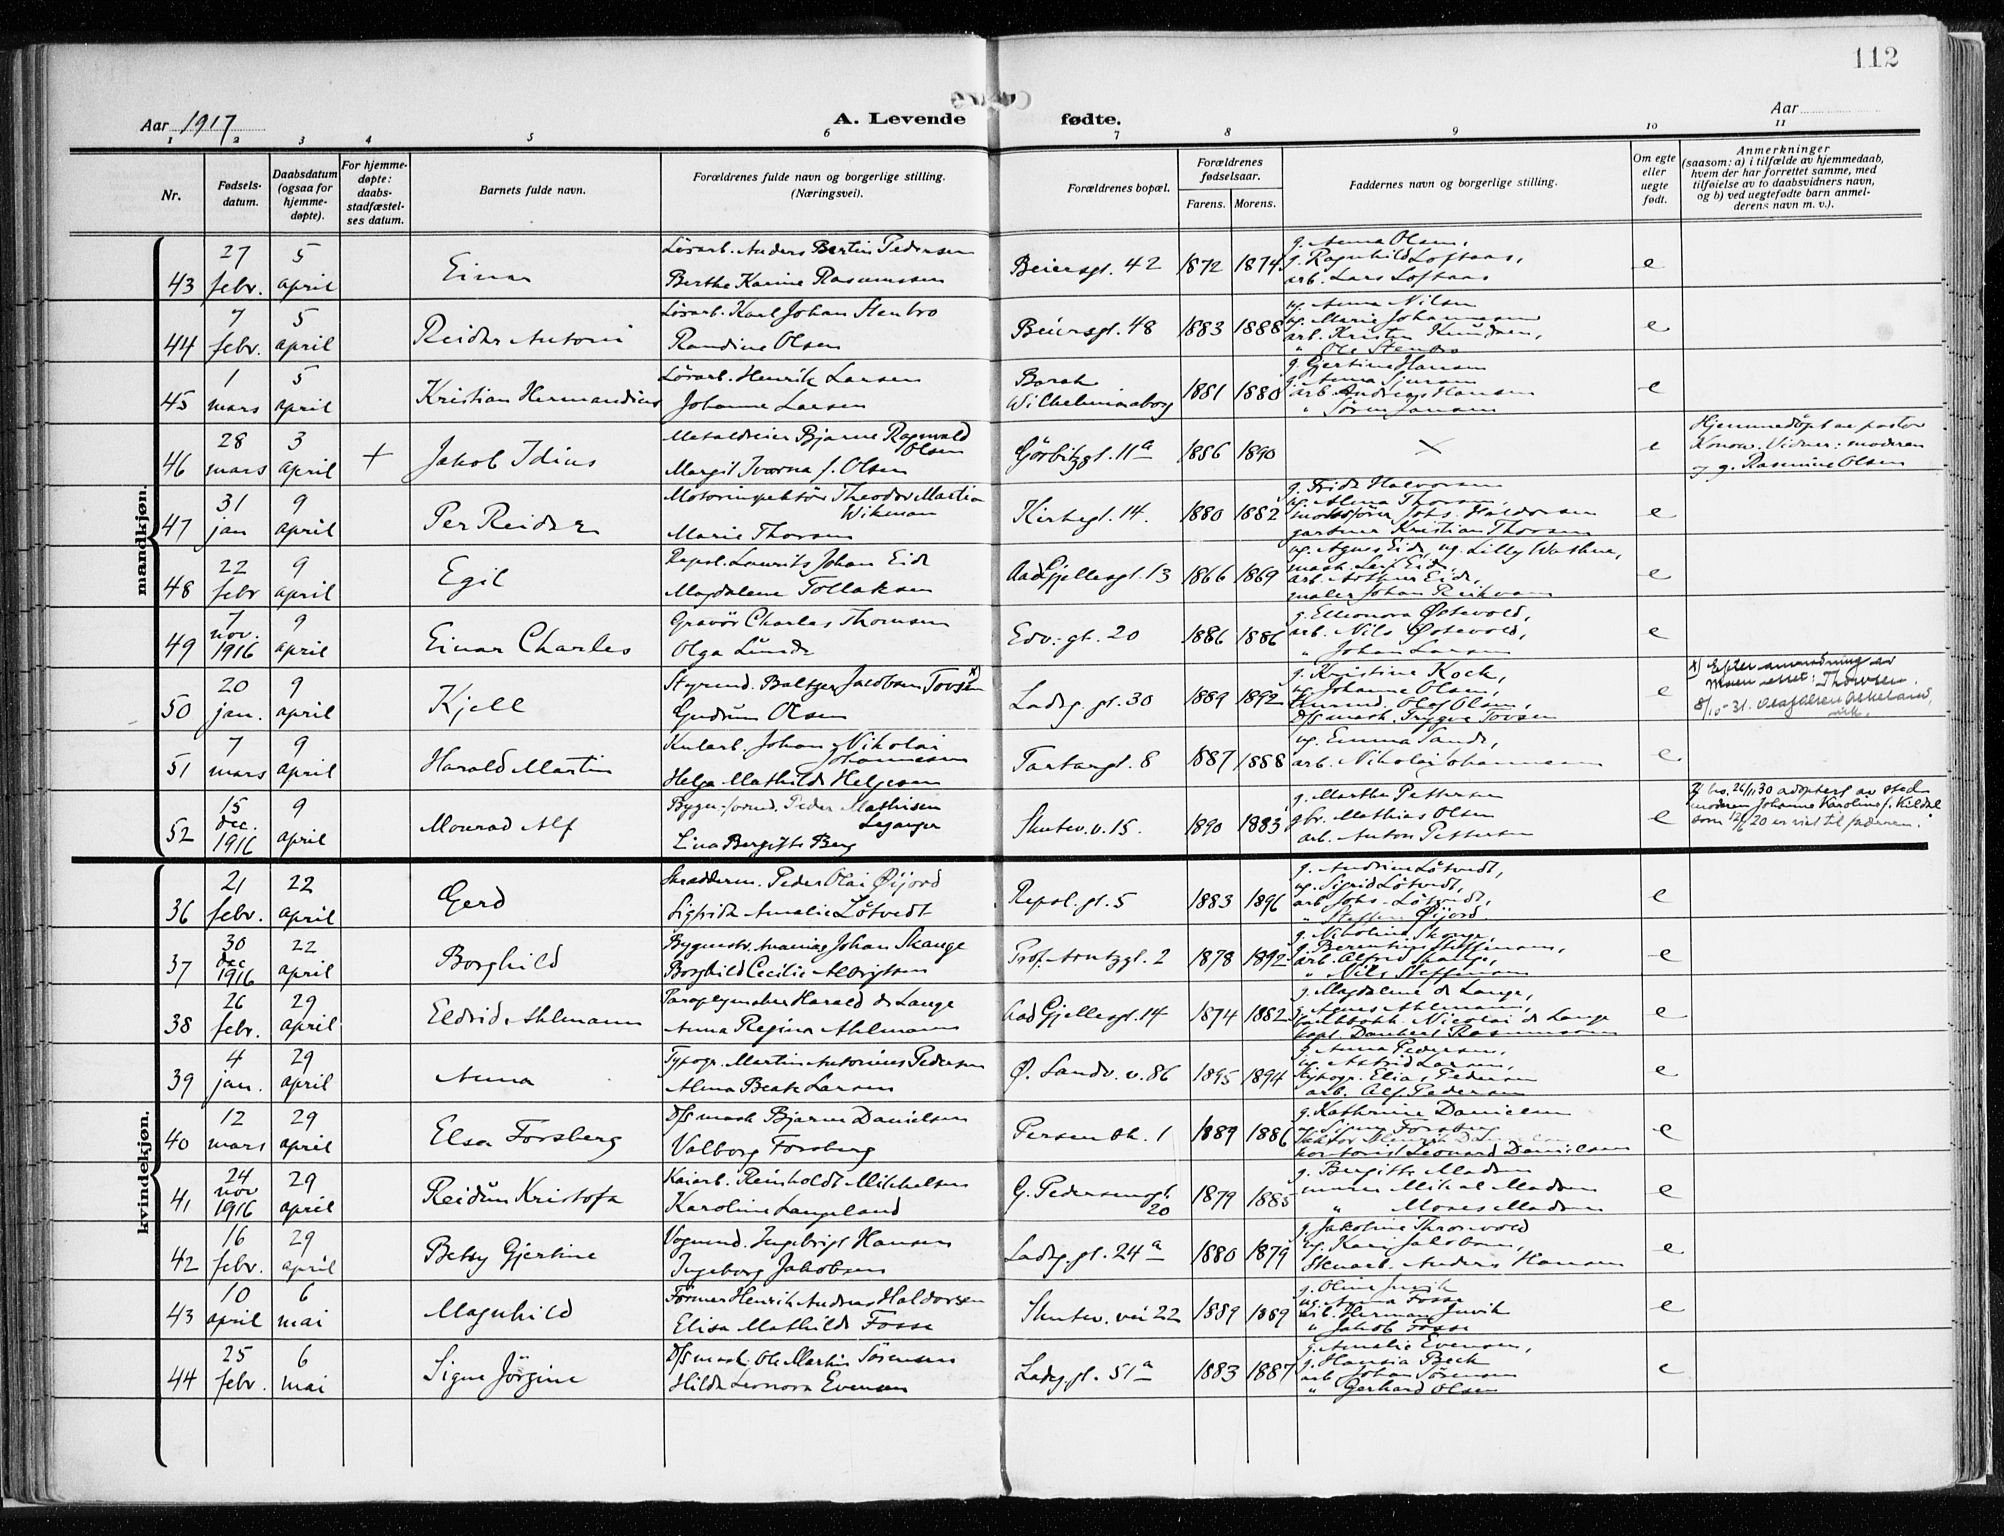 112
Aar 1917
A. Levende fødte.
Aar
1 2 3 4 5 6 7 8 9 10 11
Nr.
Fødsels-
datum.
Daabsdatum
(ogsaa for
hjemme-
døpte).
For hjemme-
døpte:
daabs-
stadfæstel-
ses datum.
Barnets fulde navn.
Forældrenes fulde navn og borgerlige stilling.
(Næringsvei).
Forældrenes bopæl.
Forældrenes
fødselsaar.
Farens. Morens.
Faddernes navn og borgerlige stilling.
Om egte
eller
uegte
født.
Anmerkninger
(saasom: a) i tilfælde av hjemmedaab,
hvem der har forrettet samme, med
tilføielse av to daabsvidners navn,
og b) ved uegtefødte barn anmel-
derens navn m. v.).
mandkjøn.
43 27 febr. 5 april Einar
Anders Bertin Pedersen
Berthe Karine Rasmussen
Beiersgt. 42 1872 1874
g. Anna Olsen,
g. Ragnhild Loftaas,
arb. Lars Loftaas
e
44 7 febr. 5 april Reidar Antoni
Lørarb. Karl Johan Stenbro
Randine Olsen
Beiersgt. 48 1883 1888
ug. Anna Nilsen
ug. Marie Johannesen
arb. Kristen Knudsen,
" Ole Stenbro
e
45 1 mars 5 april Kristian Hermandius
Lørarb. Henrik Larsen
Johanne Larsen
Barak
Wilhelminaborg 1881 1880
g. Gjertine Hansen
g. Anna
arb. Andreas Hansen
" Søren Jansen
e
46 28 mars 3 april + Jakob Idius
Bjarne Ragnvald
Olsen
Margit Iverna f. Olsen
Gørbitzgt. 11a 1886 1890
×
e
Hjemmedøpt av pastor
Konow. Vidner: moderen
og g. Rasmine Olsen
47 31 jan 9 april Per Reidar
Motorinspektør Theodor Martin
Wikman
Marie Thorsen
Kirkegt. 14. 1880 1882
g. Frida Halvorsen
ug. Alma Thorsen,
Johs. Haldorsen
gartner Kristian Thorsen
e
48 22 febr 9 april Egil
Repsl. Laurits Johan Eide
Magdalene Tollaksen
Aad Gjellesgt. 13 1866 1869
ug. Agnes Eide, ug. Lilly
mask. Leif Eide,
arb. Arthur Eide,
maler Johan
e
49 7 nov. 1916 9 april Einar Charles
Gravør Charles Thomsen
Olga Lunde
Edv. gt. 20 1886 1886
g. Elleonora Østevold,
arb. Nils Østevold,
" Johan Larsen
e
50 20 jan. 9 april Kjell
Styrmd. Baltzer Jacobsen Tovsen x)
Gudrun Olsen
Ladeg. gt. 30 1889 1892
g. Kristine Kock,
ug. Johanne Olsen,
Olaf Olsen,
D/s mask. Trygve Tovsen
e
x) Efter anmodning av
rettet: Thowsen.
8/10-31.
51 7 mars 9 april Harald Martin
Kularb. Johan Nikolai
Johannesen
Helga Mathilde Helgesen
Tartargt. 8 1887 1888
ug. Emma Sande,
arb. Nikolai Johannesen
e
52 15 dec. 1916 9 april Monrad Alf
Peder Mathisen
Leganger
Lina Bergitte Berg
Skutev. v. 15. 1890 1883
g. Martha Pettersen
gbr. Mathias Olsen
arb. Anton Pettersen
e
26/11 30 adopteg av sted-
moderen Johanne Karoline f. Kildal
som 12/6 20 er viet til faderen.
kvindekjøn.
36 21 febr. 22 april Gerd
Skrædderm. Peder Olai Øijord
Sigfride Amalie Løtvedt
Repsl. gt. 5 1883 1896
g. Andrine Løtvedt,
ug. Sigrid Løtvedt,
arb. Johs. Løtvedt,
" Steffen Øijord.
e
37 30 dec 1916 22 april Borghild
Johan Skauge
Borghild Cecilie Albrigtsen
Prof. Arntzgt. 2 1878 1892
g. Nicholine Skauge,
g. Steffensen,
arb. Alfred Skauge,
" Nils Steffensen
e
38 26 febr. 29 april Eldrid Ahlmann
Paraplymaker Harald de Lange
Anna Regina Ahlmann
Aad Gjellesgt. 14 1874 1882
g. Magdalene de Lange,
g. Agnes Ahlmann,
Nicolai de Lange
kapt. Danbert Rasmussen
e
39 4 jan. 29 april Anna
Typogr. Martin Antonius Pedersen
Alma Beate Larsen
Ø. Sandv. v. 86 1895 1894
g. Anna Pedersen,
ug. Astrid Larsen,
typogr. Elias Pedersen
arb. Alf Pedersen
e
40 12 mars 29 april Elsa Forsberg
D/s mask Bjarne Danielsen
Valborg Forsberg
Persenbk. 1 1889 1886
g. Kathrine Danielsen
ug. Signe Forsberg
Henrik Danielsen
kontorist Leonard Danielsen
e
41 24 nov 1916 29 april Reidun Kristofa
Kaiarb. Reinholdt Mikkelsen
Karoline Langeland
G. Pedersensgt.
20 1879 1885
g. Bergitte Madsen
murer Mikal Madsen
" Moses Madsen
e
42 16 febr. 29 april Betsy Gjertine
Vognmd. Ingebrigt Hansen
Ingeborg Jakobsen
Ladeg. gt. 24a 1880 1879
g. Jakobine Thronvold
ug. Kari Jakobsen,
Stenarb. Anders Hansen
e
43 10 april 6 mai Magnhild
Former Henrik Andreas Haldorsen
Elisa Mathilde Fosse
Skutev. vei 22 1889 1889
g. Oline Juvik
ug. Anna Fosse
arb. Herman Juvik
" Jakob Fosse
e
44 25 febr. 6 mai Signe Jørgine
D/s mask. Ole Martin Sørensen
Hilda Leonora Evensen
Ladeg. gt. 51a 1883 1887
g. Amalie Evensen,
g. Hansia Beck
arb. Johan Sørensen
" Gerhard Olsen
e